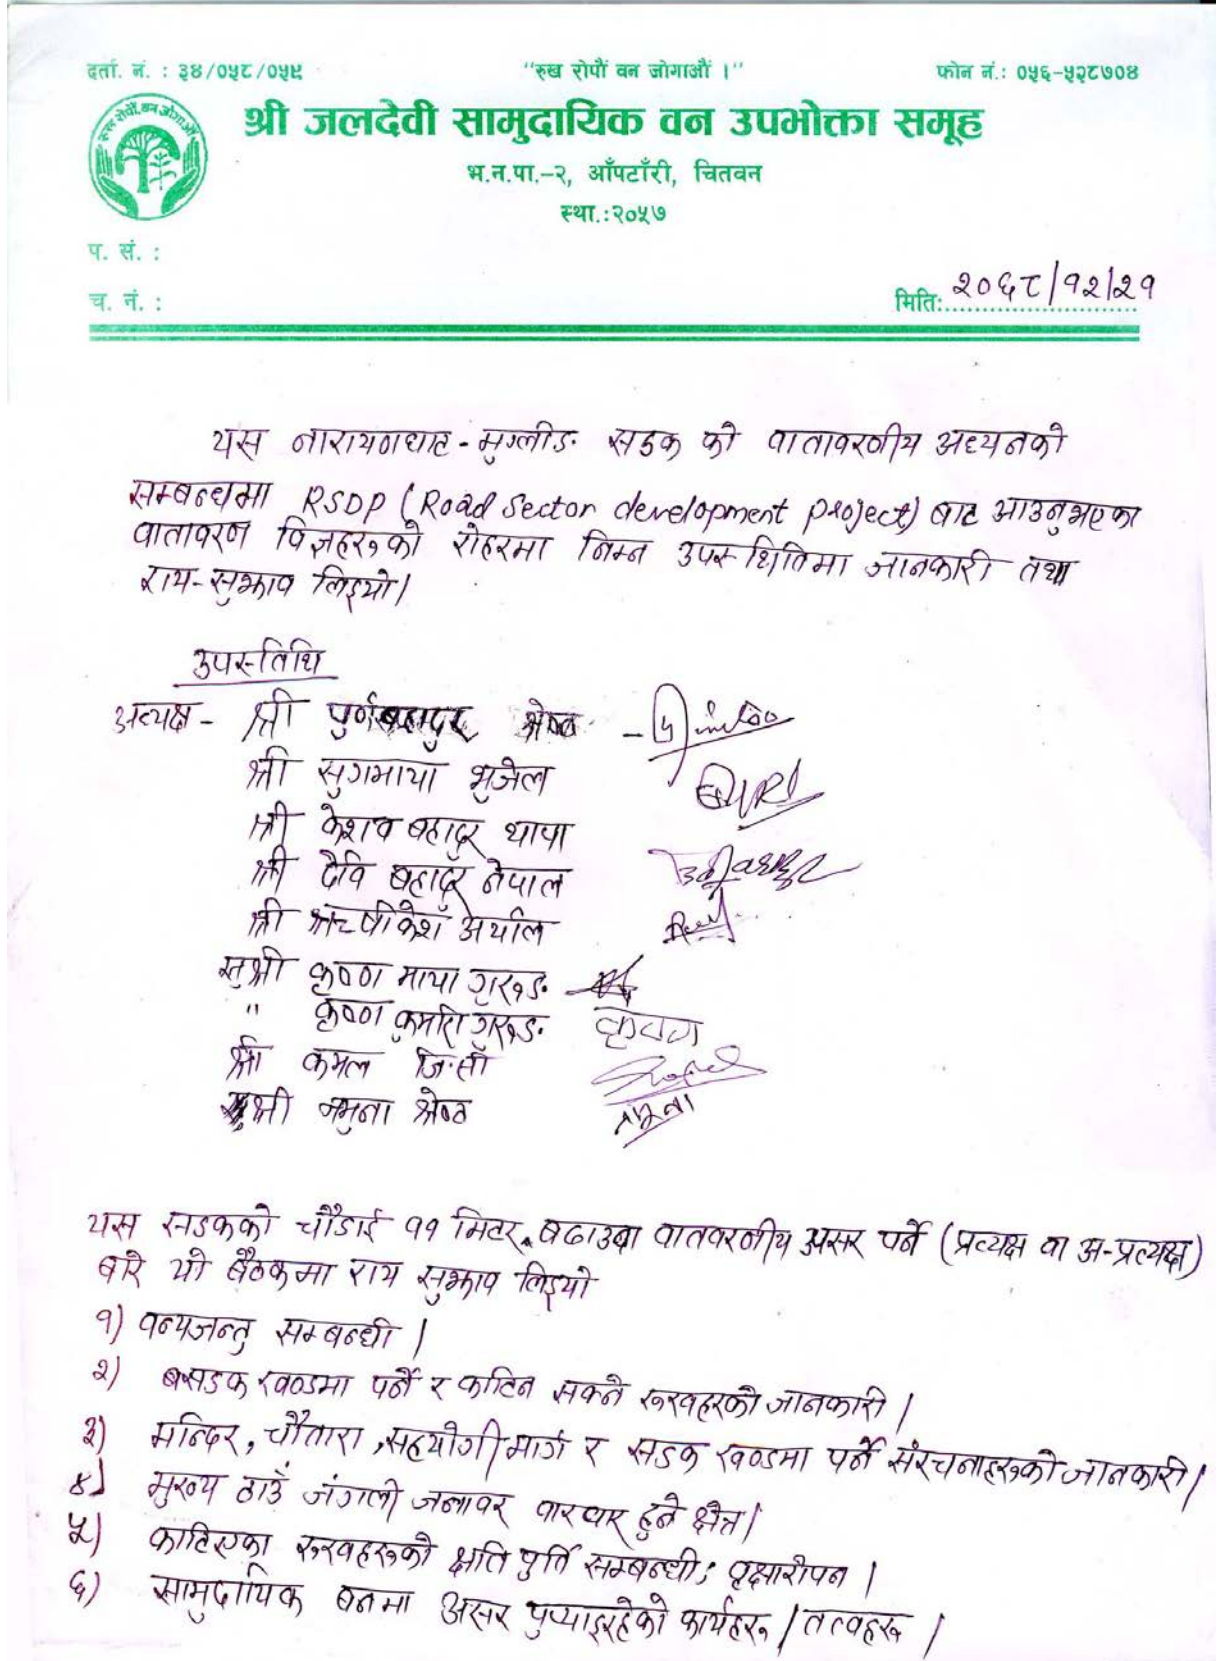 दर्ता. नं. : ३४/०५८/०५९
"रुख रोपौं वन जोगाऔं ।"
फोन नं.: ०५६-५२८७०४
श्री जलदेवी सामुदायिक वन उपभोक्ता समूह
भ.न.पा.-२, आँपटाँरी, चितवन
स्था.:२०५७
प. सं. :
च. नं. :
मितिः २०६८/१२/२१
यस नारायणघाट-मुग्लीङ सडक को वातावरणीय अध्यनको
सम्बन्धमा RSDP (Road Sector development project) बाट आउनुभएका
वातावरण विज्ञहरुको रोहरमा निम्न उपस्थितिमा जानकारी तथा
राय-सुझाव लिइयो।
उपस्तिथि
अध्यक्ष - श्री पुर्णबहादुर श्रेष्ठ -
श्री सुगमाया भुजेल
श्री केशव बहादुर थापा
श्री देवि बहादुर नेपाल
श्री ऋषीकेश अर्याल
सुश्री कृष्ण माया गुरुङ
" कृष्ण कुमारी गुरुङ कृष्ण
श्री कमल जि.सी
सुश्री जमुना श्रेष्ठ
यस सडकको चौडाई ११ मिटर बढाउदा वातवरणीय असर पर्ने (प्रत्यक्ष वा अ-प्रत्यक्ष)
बारे यो बैठकमा राय सुझाव लिइयो
१) वन्यजन्तु सम्बन्धी ।
२) सडक खण्डमा पर्ने र काटिन सक्ने रुखहरको जानकारी ।
३) मन्दिर, चौतारा, सहयोगी मार्ग र सडक खण्डमा पर्ने संरचनाहरुको जानकारी ।
४) मुख्य ठाउँ जंगली जनावर वारपार हुने क्षेत्र ।
५) काटिएका रुखहरुको क्षति पुर्ति सम्बन्धी; वृक्षारोपन ।
६) सामुदायिक बनमा असर पुर्याइरहेको कार्यहरु / तत्वहरु ।